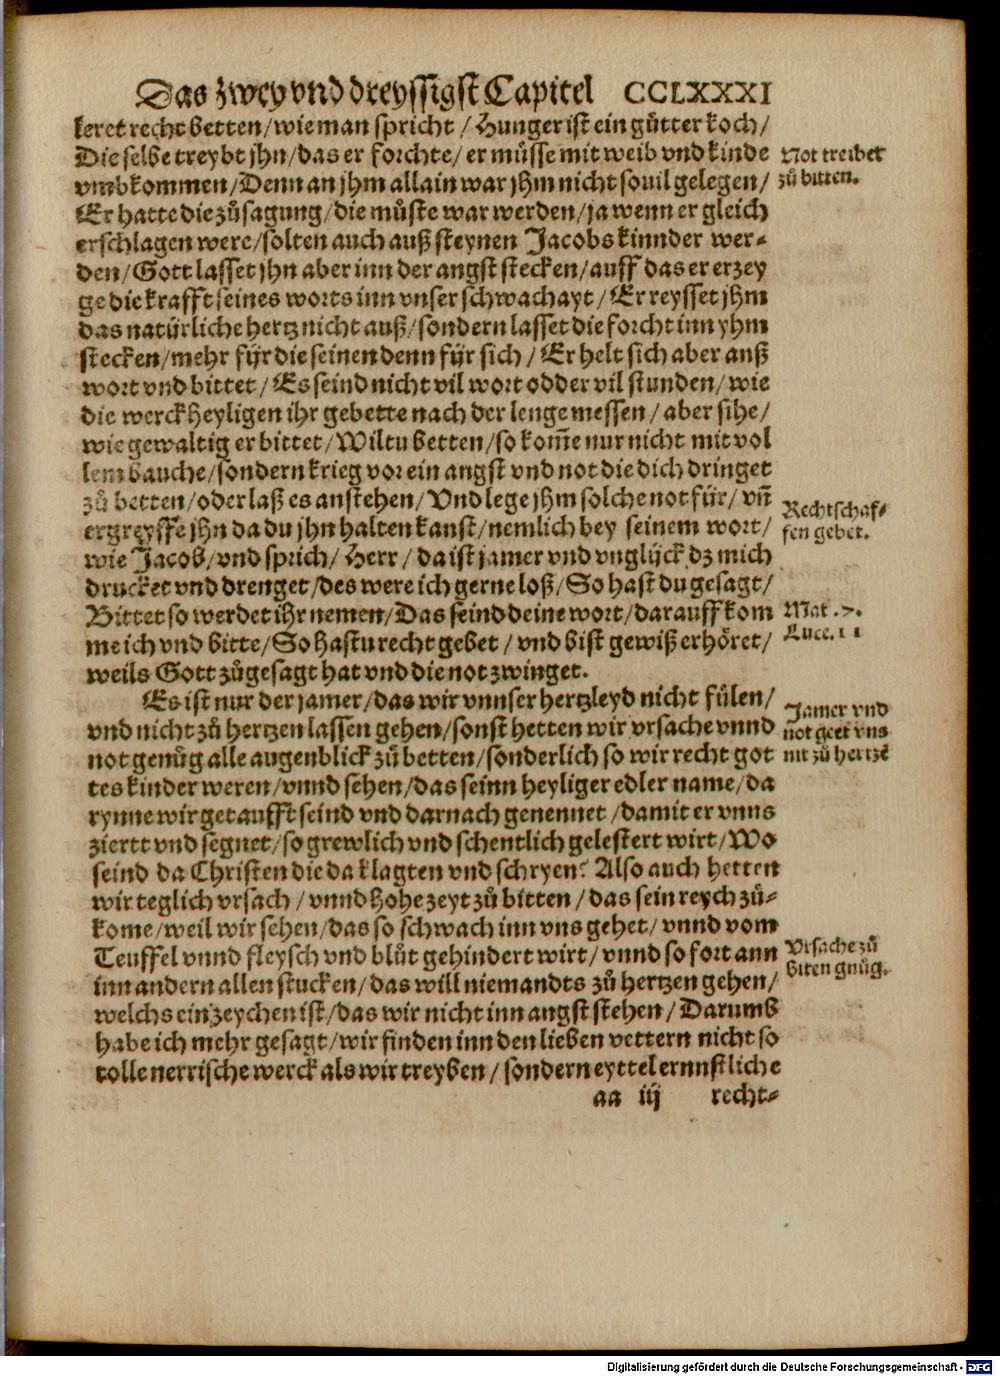 Das zwey vnd dreyssigst Capitel CCLXXXI
keret recht betten/ wie man spricht / Hunger ist ein gůtter koch/
Die selbe treybt jhn/ das er forchte/ er můsse mit weib vnd kinde
Not treibet
vmbkommen/ Denn an jhm allain war jhm nicht souil gelegen/
zů bitten.
Er hatte die zůsagung/ die můste war werden/ ja wenn er gleich
erschlagen were/ solten auch auß steynen Jacobs kinnder wer-
den/ Gott lasset jhn aber inn der angst stecken/ auff das er erzey
ge die krafft seines worts inn vnser schwachayt / Er reysset jhm
das natürliche hertz nicht auß/ sondern lasset die forcht inn yhm
stecken/ mehr für die seinen denn für sich / Er helt sich aber anß
wort vnd bittet / Es seind nicht vil wort odder vil stunden/ wie
die werckheyligen ihr gebette nach der lenge messen / aber sihe/
wie gewaltig er bittet/ Wiltu betten/ so kom̃e nur nicht mit vol
lem bauche/ sondern krieg vor ein angst vnd not die dich dringet
zů betten/ oder laß es anstehen/ Vnd lege jhm solche not für/ vñ
Rechtschaf-
ergreysse jhn da du jhn halten kanst/ nemlich bey seinem wort/
fen gebet.
wie Jacob/ vnd sprich/ Herr / da ist jamer vnd vnglück dz mich
drucket vnd drenget/ des were ich gerne loß/ So hast du gesagt/
Bittet so werdet ihr nemen/ Das seind deine wort/ darauff kom
Mat .7.
me ich vnd bitte/ So hastu recht gebet / vnd bist gewiß erhöret/
Luce. 11
weils Gott zůgesagt hat vnd die not zwinget.
Es ist nur der jamer/ das wir vnnser hertzleyd nicht fülen/
Jamer vnd
vnd nicht zů hertzen lassen gehen/ sonst hetten wir vrsache vnnd
not geet vns
not genůg alle augenblick zů betten/ sonderlich so wir recht got
nit zů hertzẽ
tes kinder weren/ vnnd sehen/ das seinn heyliger edler name/ da
rynne wir getaufft seind vnd darnach genennet / damit er vnns
ziertt vnd segnet/ so grewlich vnd schentlich gelestert wirt/ Wo
seind da Christen die da klagten vnd schryen? Also auch hetten
wir teglich vrsach / vnnd hohe zeyt zů bitten / das sein reych zů-
kome/ weil wir sehen/ das so schwach inn vns gehet/ vnnd vom
Teuffel vnnd fleysch vnd blůt gehindert wirt/ vnnd so fort ann
Vrsache zů
inn andern allen stucken/ das will niemandts zů hertzen gehen/
biten gnůg.
welchs ein zeychen ist/ das wir nicht inn angst stehen/ Darumb
habe ich mehr gesagt/ wir finden inn den lieben vettern nicht so
tolle nerrische werck als wir treyben/ sondern eyttel ernnstliche
aa iij recht-
Digitalisierung gefördert durch die Deutsche Forschungsgemeinschaft - DFG